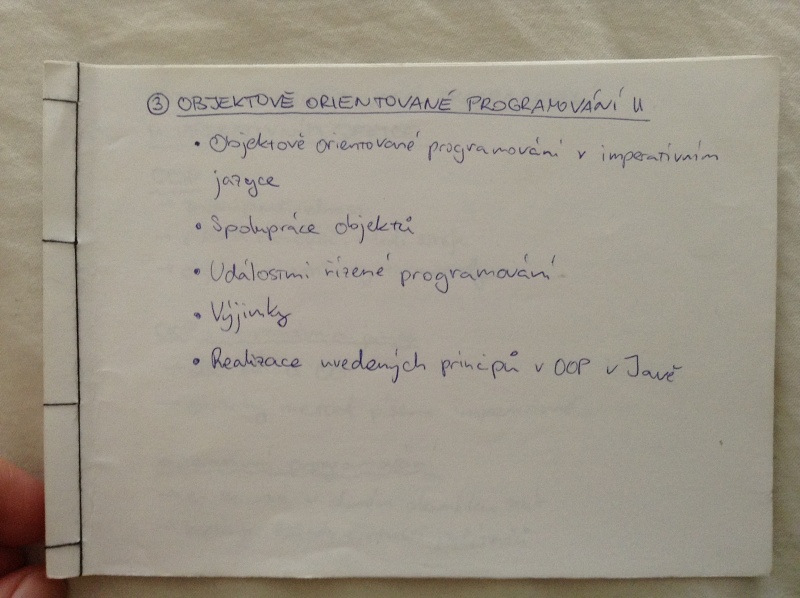 ③ OBJEKTOVĚ ORIENTOVANÉ PROGRAMOVÁNÍ II
• Objektově orientované programování v imperativním
jazyce
• Spolupráce objektů
• Událostmi řízené programování
• Výjimky
• Realizace uvedených principů v OOP v Javě